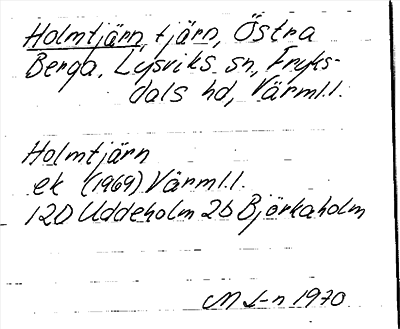 Holmtjärn, tjärn, Östra
Berga, Lysviks sn, Fryks-
dals hd, Värml.l.
Holmtjärn
ek (1969) Värml.l.
12D Uddeholm 2b Björkaholm
M J-n 1970